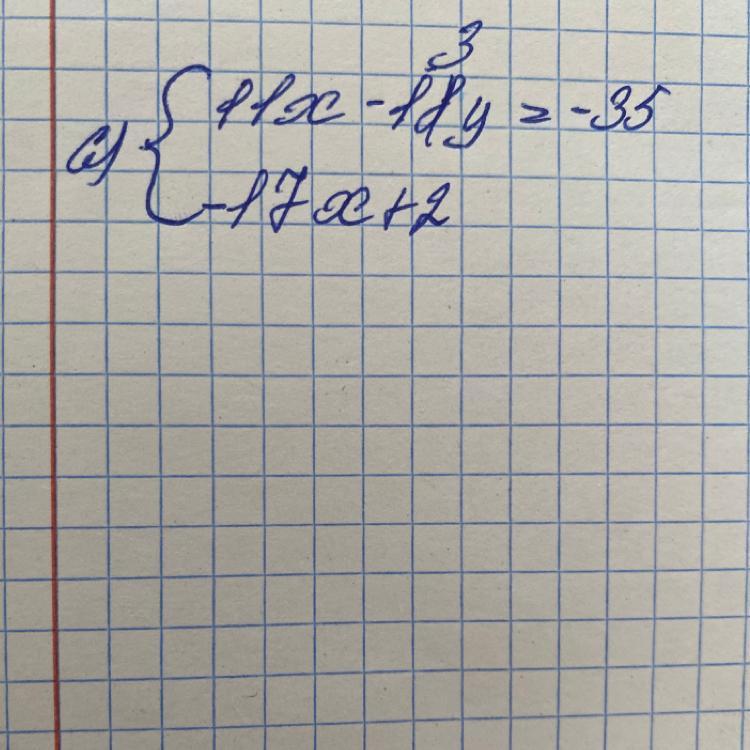 c) { 11x - 13y = -35
-17x + 2